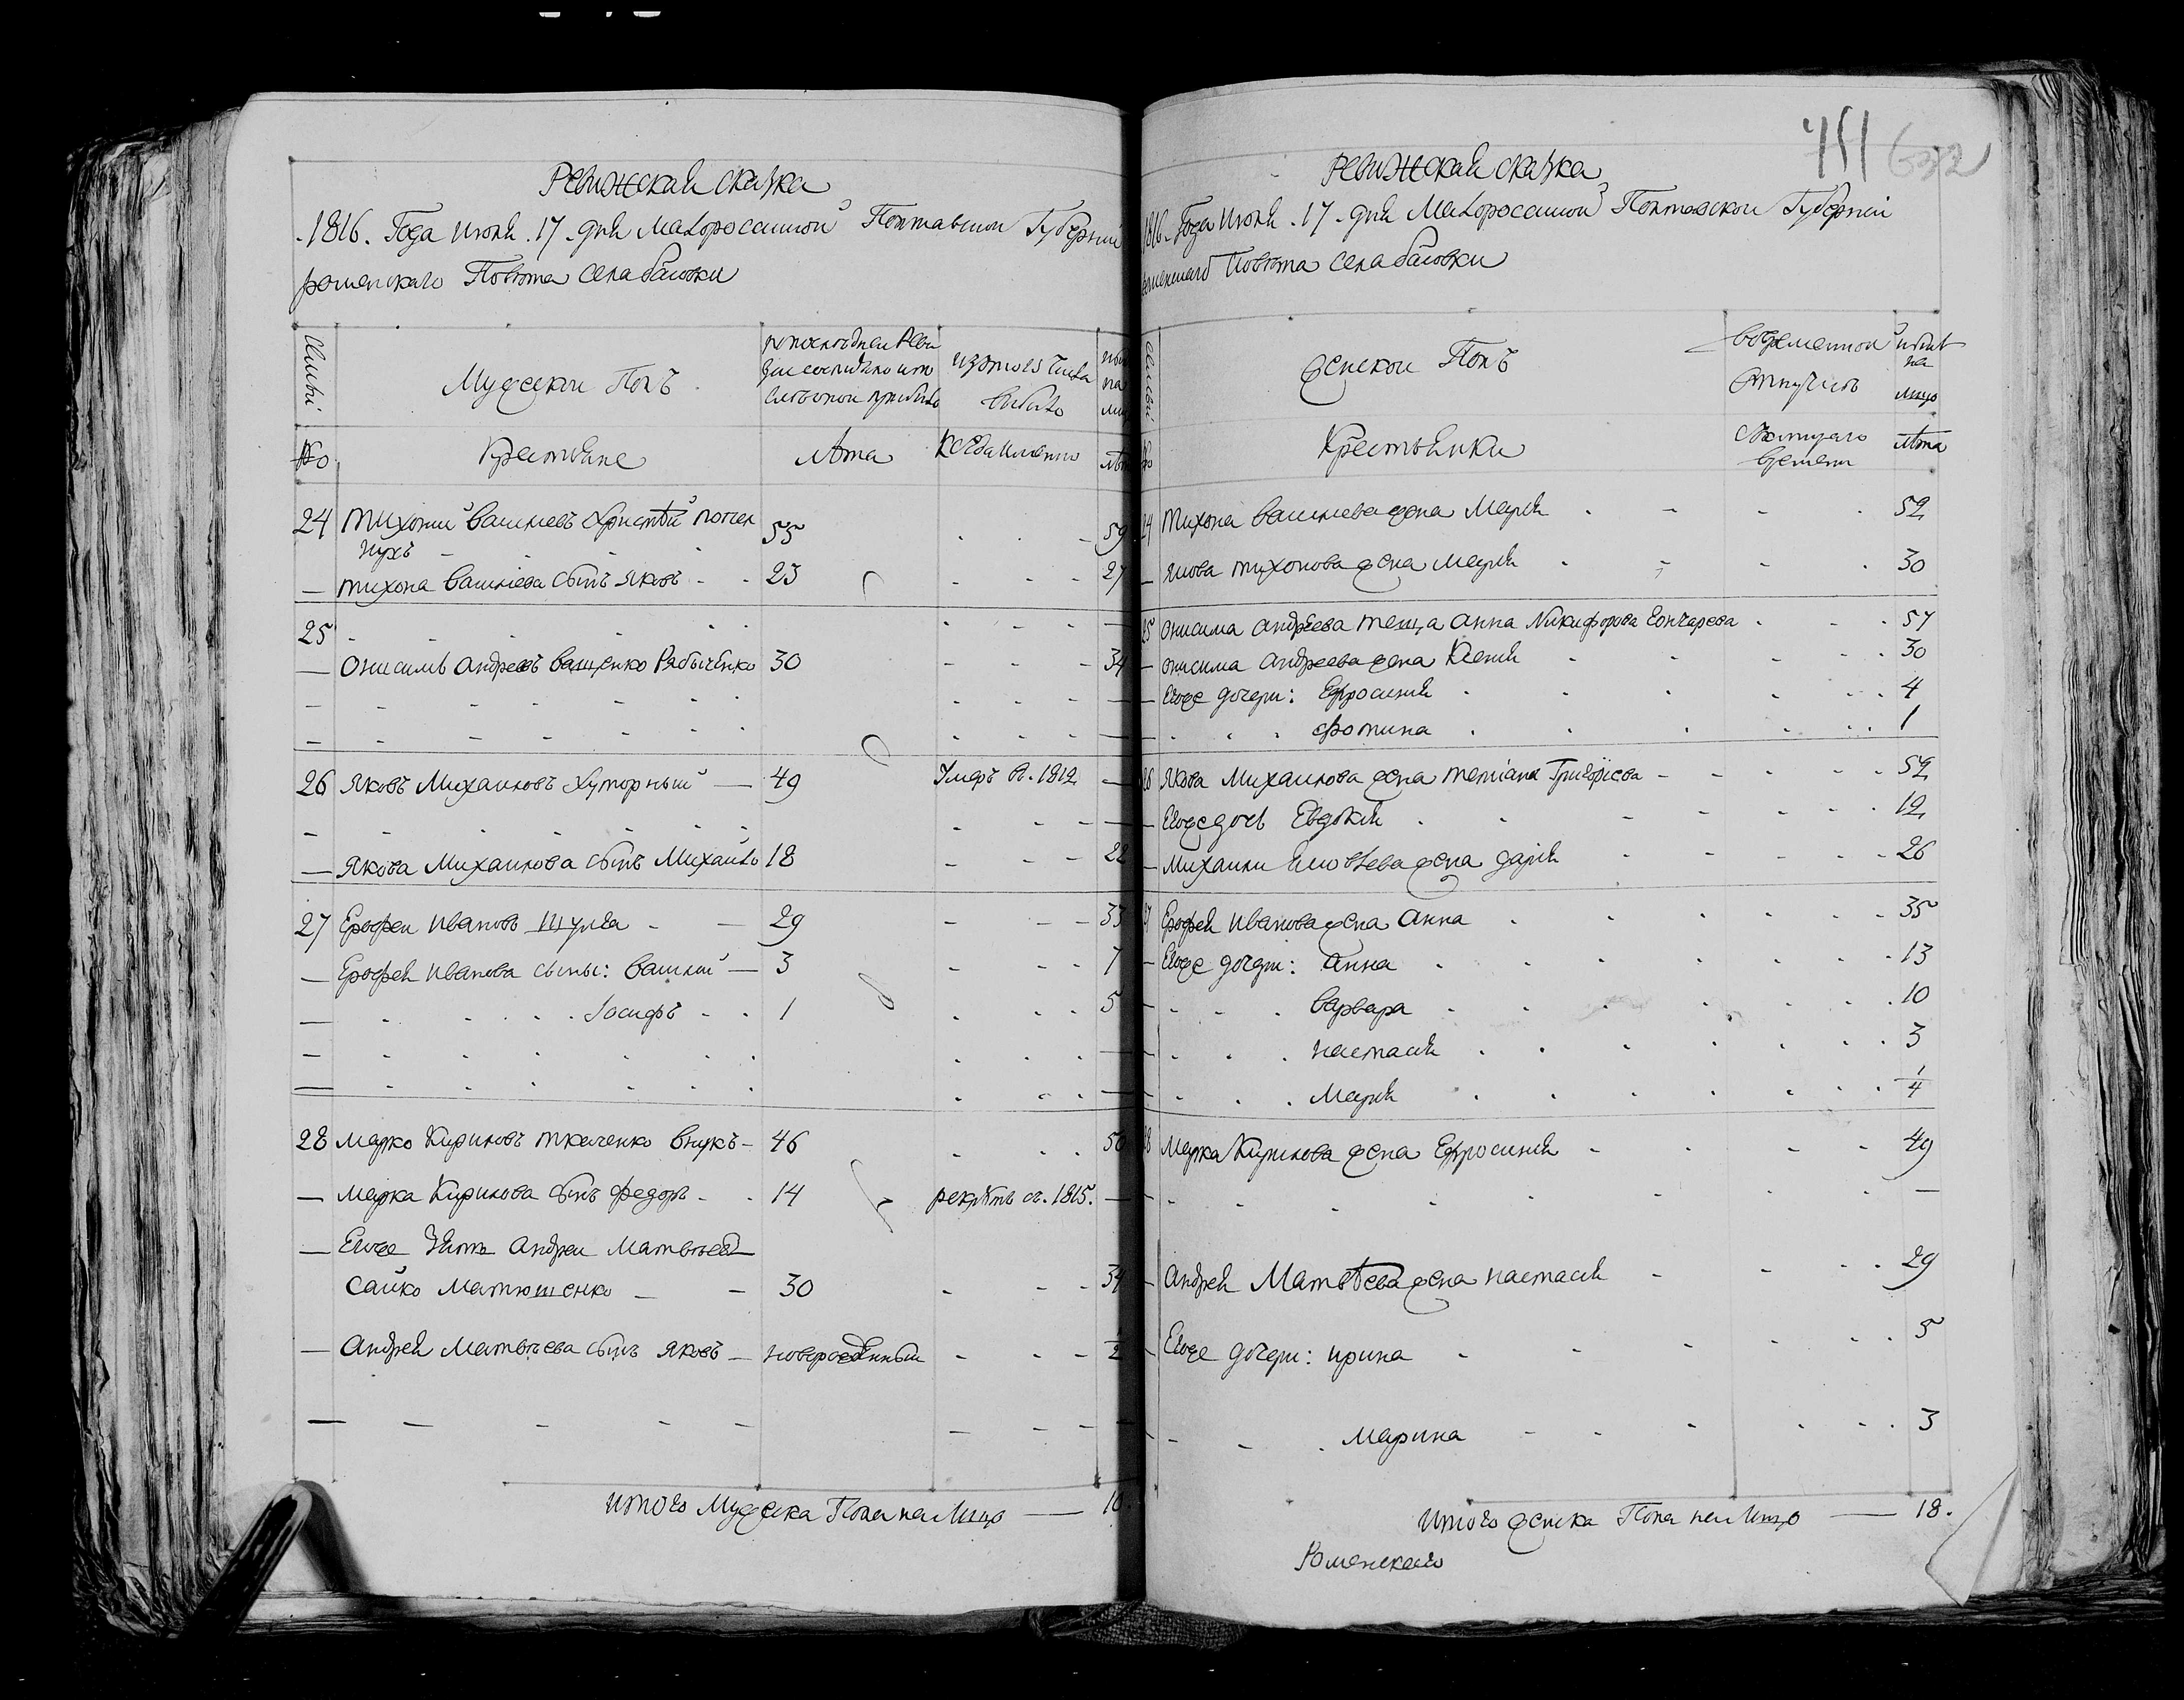 Ревижская сказка
1816. Года июня .17. дня Малороссийской Полтавской Губернии
роменского Повѣта села басовки
Семьи
Мужескои Полъ
по последнеи Реви
зии состояло и по
слѣ оной прибыло
изъ того числа
выбыло
№
Крестьяне
Лѣта
Когда именно
24 Тихонъ василиевъ 55 59
нухъ
— Тихона василиева сынъ яковъ 23 27
25
— Онисимъ андреевъ ващенко Рябыченко 30 34
26 Яковъ Михаиловъ Хуторный — 49 Умеръ в. 1812 —
— Якова Михаилова сынъ Михаило 18 22
27 Ерофеи ивановъ Шулга 29 33
— Ерофея иванова сыны: василий — 3 7
— Іосифъ 1 5
28 Марко Кириловъ ткаченко внукъ — 46 50
— Марка Кирилова сынъ федоръ 14 рекрутъ съ. 1815. —
— Егоже Зять Андреи Матвѣевъ
Сайко Матюшенко — 30 34
— Андрея Матвѣева сынъ яковъ — новорожденный ½
итого Мужеска Пола на Лицо — 10
451 632
Ревижская сказка
1816. Года июня .17. дня Малороссийской Полтавской Губернии
роменского Повѣта села басовки
Семьи
женскои Полъ
во временной
отлучкѣ
нынѣ
на
лицо
№
Крестьянки
Съ котораго
времени
лѣта
24 Тихона василиева жена Мария 52
— якова тихонова жена мария 30
25 онисима андреева теща анна Никифорова Гончарева 57
— онисима андреева жена Ксения 30
— Егоже дочери: Ефросиния 4
фотина 1
26 Якова Михаилова жена татиана Григориева 52
— Егоже дочь Евдокия 12
— Михаила яковлева жена дария 26
27 Ерофея иванова жена анна 35
— Егоже дочери: анна 13
варвара 10
настасия 3
Мария ¼
28 Марка Кирилова жена Ефросиния 49
— Андрея Матвѣева жена настасия 29
— Егоже дочери: ирина 5
марина 3
итого женска Пола на Лицо — 18.
Роменскаго